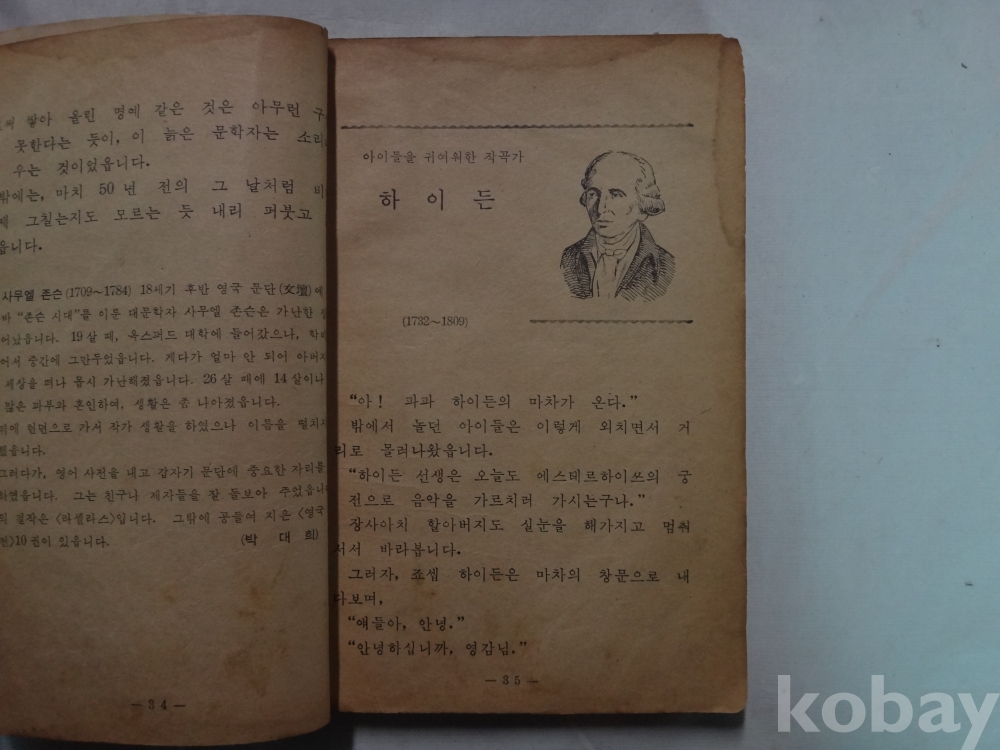 쌓아 올린 명예 같은 것은 아무런 구
못한다는 듯이, 이 늙은 문학자는 소리
우는 것이었읍니다.
밖에는, 마치 50년 전의 그 날처럼 비
그칠는지도 모르는 듯 내리 퍼붓고
읍니다.
사무엘 존슨(1709～1784) 18세기 후반 영국 문단(文壇)에
바 “존슨 시대”를 이룬 대문학자 사무엘 존슨은 가난한
어났읍니다. 19살 때, 옥스퍼드 대학에 들어갔으나, 학비
어서 중간에 그만두었읍니다. 게다가 얼마 안 되어 아버지
세상을 떠나 몹시 가난해졌읍니다. 26살 때에 14살이나
많은 과부와 혼인하여, 생활은 좀 나아졌읍니다.
뒤에 런던으로 가서 작가 생활을 하였으나 이름을 떨치지
했읍니다.
그러다가, 영어 사전을 내고 갑자기 문단에 중요한 자리를
하였읍니다. 그는 친구나 제자들을 잘 돌보아 주었읍니
의 걸작은 〈라셀라스〉입니다. 그밖에 공들여 지은 〈영국
전〉10권이 있읍니다. (박 대 희)
— 3 4 —
아이들을 귀여워한 작곡가
하 이 든
(1732～1809)
“아! 파파 하이든의 마차가 온다.”
밖에서 놀던 아이들은 이렇게 외치면서 거
리로 몰려나왔읍니다.
“하이든 선생은 오늘도 에스테르하이쓰의 궁
전으로 음악을 가르치러 가시는구나.”
장사아치 할아버지도 실눈을 해가지고 멈춰
서서 바라봅니다.
그러자, 죠셉 하이든은 마차의 창문으로 내
다보며,
“얘들아, 안녕.”
“안녕하십니까, 영감님.”
— 3 5 —
kobay